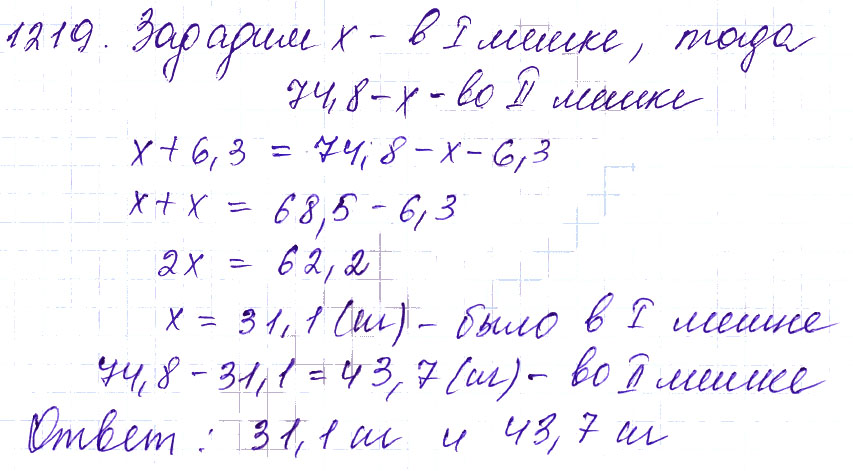 1219. Зададим х - в I мешке, тогда
74,8 - х - во II мешке
х + 6,3 = 74,8 - х - 6,3
х + х = 68,5 - 6,3
2х = 62,2
х = 31,1 (кг) - было в I мешке
74,8 - 31,1 = 43,7 (кг) - во II мешке
Ответ: 31,1 кг и 43,7 кг